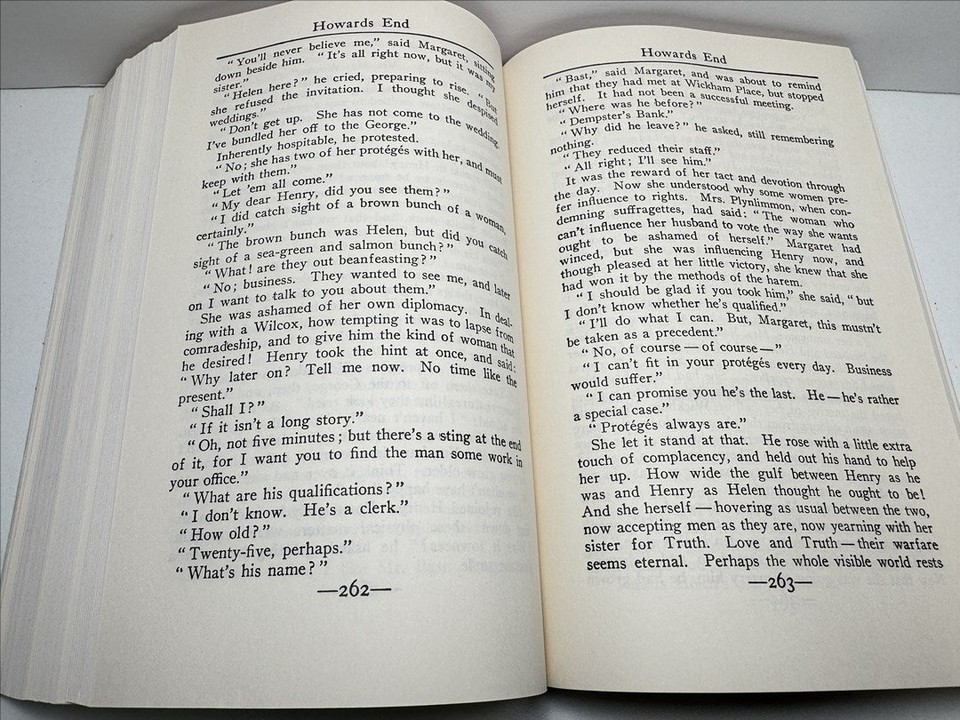 Howards End
“You'll never believe me,” said Margaret, sitting
down beside him. “It's all right now, but it was my
sister.”
“Helen here?” he cried, preparing to rise. “But
she refused the invitation. I thought she despised
weddings.”
“Don't get up. She has not come to the wedding.
I've bundled her off to the George.”
Inherently hospitable, he protested.
“No; she has two of her protégés with her, and must
keep with them.”
“Let 'em all come.”
“My dear Henry, did you see them?”
“I did catch sight of a brown bunch of a woman,
certainly.”
“The brown bunch was Helen, but did you catch
sight of a sea-green and salmon bunch?”
“What! are they out beanfeasting?”
“No; business. They wanted to see me, and later
on I want to talk to you about them.”
She was ashamed of her own diplomacy. In deal-
ing with a Wilcox, how tempting it was to lapse from
comradeship, and to give him the kind of woman that
he desired! Henry took the hint at once, and said:
“Why later on? Tell me now. No time like the
present.”
“Shall I?”
“If it isn't a long story.”
“Oh, not five minutes; but there's a sting at the end
of it, for I want you to find the man some work in
your office.”
“What are his qualifications?”
“I don't know. He's a clerk.”
“How old?”
“Twenty-five, perhaps.”
“What's his name?”
—262—
Howards End
“Bast,” said Margaret, and was about to remind
him that they had met at Wickham Place, but stopped
herself. It had not been a successful meeting.
“Where was he before?”
“Dempster's Bank.”
“Why did he leave?” he asked, still remembering
nothing.
“They reduced their staff.”
“All right; I'll see him.”
It was the reward of her tact and devotion through
the day. Now she understood why some women pre-
fer influence to rights. Mrs. Plynlimmon, when con-
demning suffragettes, had said: “The woman who
can't influence her husband to vote the way she wants
ought to be ashamed of herself.” Margaret had
winced, but she was influencing Henry now, and
though pleased at her little victory, she knew that she
had won it by the methods of the harem.
“I should be glad if you took him,” she said, “but
I don't know whether he's qualified.”
“I'll do what I can. But, Margaret, this mustn't
be taken as a precedent.”
“No, of course — of course—”
“I can't fit in your protégés every day. Business
would suffer.”
“I can promise you he's the last. He—he's rather
a special case.”
“Protégés always are.”
She let it stand at that. He rose with a little extra
touch of complacency, and held out his hand to help
her up. How wide the gulf between Henry as he
was and Henry as Helen thought he ought to be!
And she herself — hovering as usual between the two,
now accepting men as they are, now yearning with her
sister for Truth. Love and Truth — their warfare
seems eternal. Perhaps the whole visible world rests
—263—